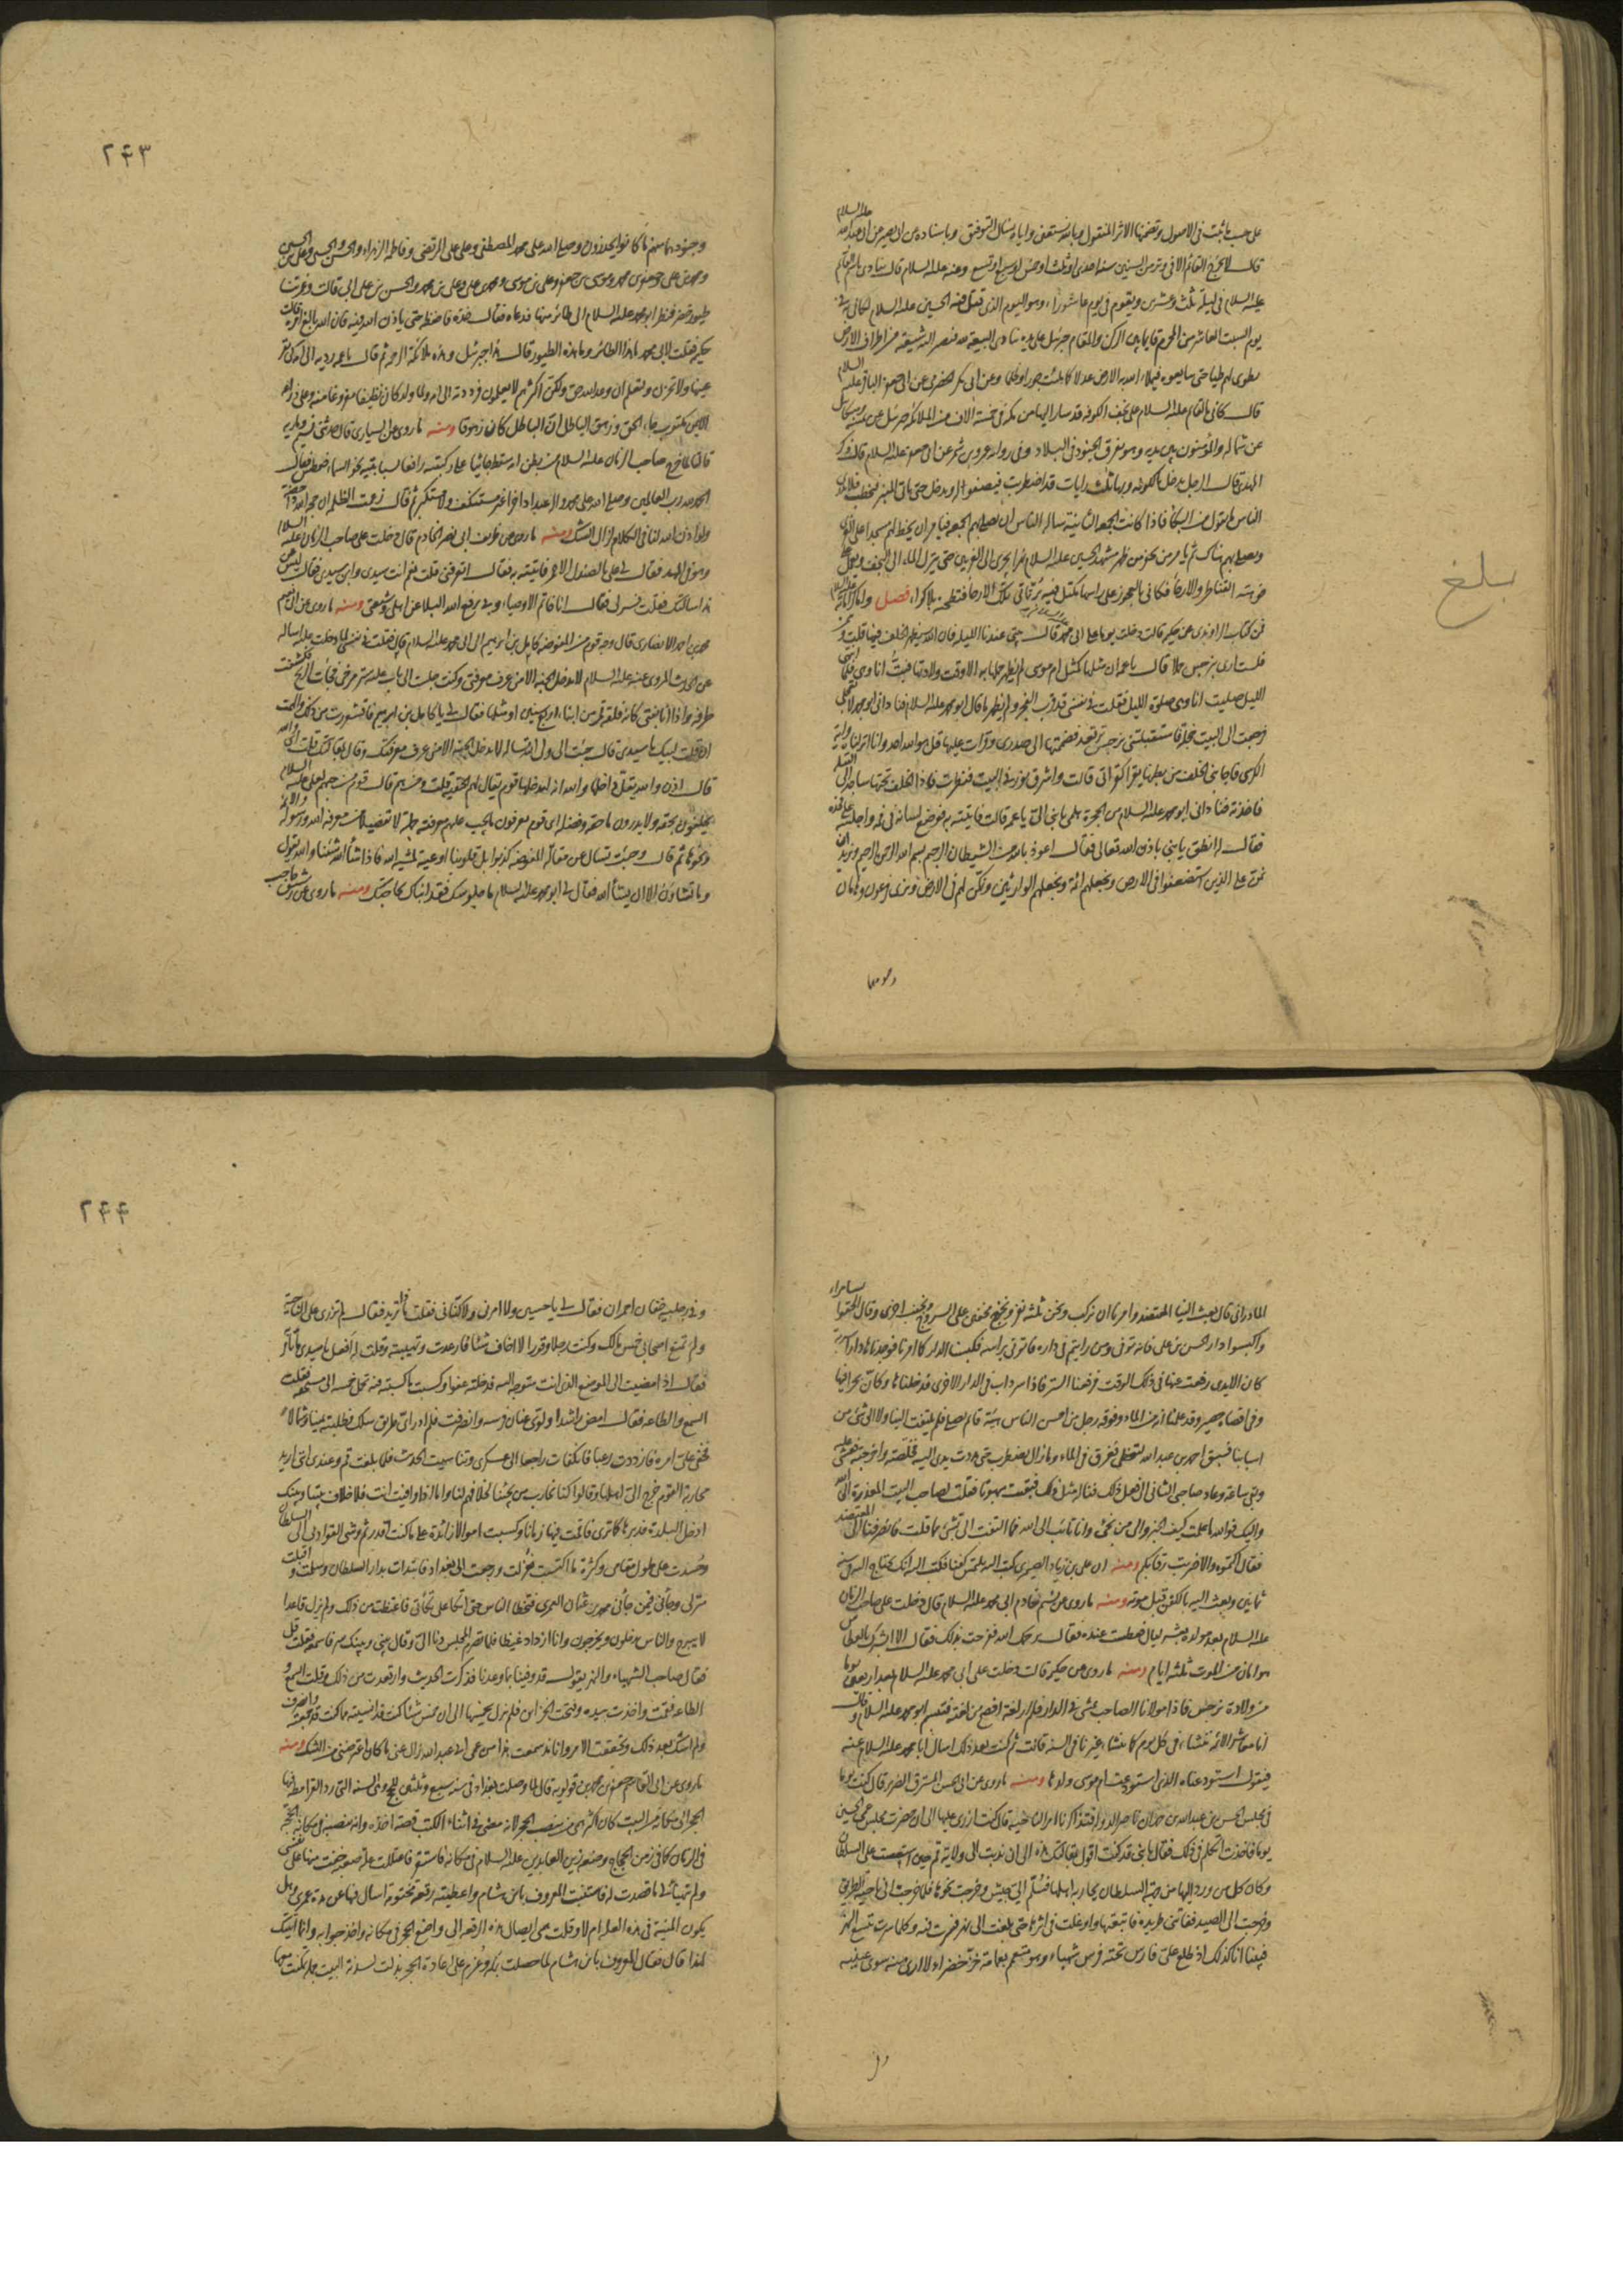 على حسب ما ثبت فى الاصول وتضمنها الاثر المنقول وبالله نستعين واياه نسال التوفيق وباسناده عن ابى بصير عن ابى عبد الله عليه السلام
قال لا يخرج القائم الا فى وتر من السنين سنة احدى او ثلث او خمس او سبع او تسع وعنه عليه السلام قال ينادى باسم القائم
عليه السلام فى ليلة ثلث وعشرين ويقوم فى يوم عاشورا وهو اليوم الذى قتل فيه الحسين عليه السلام لكانى به فى
يوم السبت العاشر من المحرم قايما بين الركن والمقام جبرئيل على يده ينادى البيعة لله فتصير اليه شيعته من اطراف الارض
تطوى لهم طيا حتى يبايعوه فيملاء الله به الارض عدلا كما ملئت جورا وظلما وعن ابى بكر الحضرمى عن ابى جعفر الباقر عليه السلام
قال كانى بالقائم عليه السلام على نجف الكوفه قد سار اليها من مكة فى خمسة الاف من الملائكة جبرئيل عن يمينه وميكائيل
عن شماله والمؤمنون بين يديه وهو يفرق الجنود فى البلاد وفى رواية عمرو بن شمر عن ابى جعفر عليه السلام قال ذكر
المهدى فقال يدخل الكوفه وبها ثلث رايات قد اضطربت فيصفوا له ويدخل حتى ياتى المنبر فيخطب فلا يدرى
الناس ما يقول من البكا فاذا كانت الجمعه الثانية ساله الناس ان يصلى بهم الجمعه فيامر ان يخط له مسجدا على الغرى
ويصلى بهم هناك ثم يامر من يحفر من ظهر مشهد الحسين عليه السلام نهرا يجرى الى الغريين حتى ينزل الماء الى النجف ويعمل على
فوهته القناطير والارحا فكانى بالعجوز على راسها مكتل فيه بر تاتى تلك الارحا فتطحنه بلا كرا فصل
فمن كتاب الراوندى عن حكيمة قالت دخلت يوما على ابى محمد قال بيتى عندنا الليله فان الله سيظهر الخلف فيها قلت وممن
فلست ارى بنرجس حملا قال يا عمه ان مثلها كمثل ام موسى لم يظهر حملها به الا وقت ولادتها فبت انا وهى
الليل صليت انا وهى صلوة الليل فقلت فى نفسى قد قرب الفجر ولم يظهر ما قال ابو محمد عليه السلام فنادانى ابو محمد لا تعجلى
فرجعت الى البيت خجلة فاستقبلتنى نرجس ترتعد فضممتها الى صدرى وقرات عليها قل هو الله احد وانا انزلناه واية
الكرسى فاجابنى الخلف من بطنها يقرا كقراتى قالت واشرق نور فى البيت فنظرت فاذا الخلف تحتها ساجد الى القبلة
فاخذته فنادانى ابو محمد عليه السلام من الحجرة هلمى بابنى الى يا عمه قالت فاتيته به فوضع لسانه فى فيه واجلسه على فخذه
فقال انطق يا بنى باذن الله تعالى فقال اعوذ بالله من الشيطان الرجيم بسم الله الرحمن الرحيم ونريد ان
نمن على الذين استضعفوا فى الارض ونجعلهم ائمة ونجعلهم الوارثين ونمكن لهم فى الارض ونرى فرعون وهامان
وجنودهما
بلغ
۲۴۳
وجنودهما منهم ما كانوا يحذرون وصلى الله على محمد المصطفى وعلى على المرتضى وفاطمة الزهراء والحسن والحسين وعلى بن الحسين
ومحمد بن على وجعفر بن محمد وموسى بن جعفر وعلى بن موسى ومحمد بن على وعلى بن محمد والحسن بن على ابى قالت وغمرتنا
طيور خضر فنظر ابو محمد عليه السلام الى طائر منها فدعاه فقال خذه فاحفظه حتى ياذن الله فيه فان الله بالغ امره قالت
حكيمة فقلت لابى محمد ما هذا الطائر وما هذه الطيور قال هذا جبرئيل وهذه ملائكة الرحمة ثم قال يا عمه رديه الى امه كى تقر
عينها ولا تحزن ولتعلم ان وعد الله حق ولكن اكثرهم لا يعلمون فرددته الى امه ولما ولد كان نظيفا مفروغا منه وعلى ذراعه
الايمن مكتوب جاء الحق وزهق الباطل ان الباطل كان زهوقا ومنه ما روى عن السيارى قال حدثنى نسيم ومارية
قالتا لما خرج صاحب الزمان عليه السلام من بطن امه سقط جاثيا على ركبتيه رافعا سبابتيه نحو السماء فعطس فقال
الحمد لله رب العالمين وصلى الله على محمد واله عبدا داخرا غير مستنكف ولا مستكبر ثم قال زعمت الظلمة ان حجة الله داحضة
ولو اذن الله لنا فى الكلام لزال الشك ومنه ما روى عن ظريف ابى نصر الخادم قال دخلت على صاحب الزمان عليه السلام
وهو فى المهد فقال لى على بالصندل الاحمر فاتيته به فقال اتعرفنى قلت نعم انت سيدى وابن سيدى فقال ليس عن
هذا سالتك فقلت فسر لى فقال انا خاتم الاوصيا وبى يرفع الله البلا عن اهلى وشيعتى ومنه ما روى عن ابى نعيم
محمد بن احمد الانصارى قال وجه قوم من المفوضة كامل بن ابراهيم الى ابى محمد عليه السلام قال فقلت فى نفسى لما دخلت عليه اساله
عن الحديث المروى عنه عليه السلام لا يدخل الجنة الا من عرف معرفتى وكنت جلست الى باب عليه ستر مرخى فجات الريح فكشفت
طرفه واذا انا بفتى كانه فلقة قمر من ابناء اربع سنين او مثلها فقال لى يا كامل بن ابراهيم فاقشعررت من ذلك والهمت
ان قلت لبيك يا سيدى قال جئت الى ولى الله تساله لا يدخل الجنة الا من عرف معرفتك وقال بمقالتك قلت اى والله
قال اذن والله يقل داخلها والله انه ليدخلها قوم يقال لهم الحقية قلت ومن هم قال قوم من حبهم لعلى عليه السلام
يحلفون بحقه ولا يدرون ما حقه وفضله اى قوم يعرفون ما يجب عليهم معرفته جملة لا تفصيلا من معرفة الله ورسوله والائمة
ونحوها ثم قال وجئت تسال عن مقالة المفوضة كذبوا بل قلوبنا اوعية لمشية الله فاذا شاء الله شئنا والله يقول
وما تشاؤن الا ان يشاء الله فقال لى ابو محمد عليه السلام ما جلوسك فقد انباك بحاجتك ومنه ما روى عن رشيق حاجب
المادرانى قال بعث الينا المعتضد وامرنا ان نركب ونحن ثلثة نفر ونخرج مخفين على السروج ونجنب اخرى وقال الحقوا بسامراء
واكبسوا دار الحسن بن على فانه توفى ومن رايتم فى داره فاتونى براسه فكبسنا الدار كما امرنا فوجدناها دارا سرية
كان الايدى رفعت عنها فى ذلك الوقت فرفعنا الستر فاذا سرداب فى الدار الاخرى فدخلناها وكان بحرا فيها
وفى اقصاه حصير وقد علمنا انه على الماء وفوقه رجل من احسن الناس هيئة قائم يصلى فلم يلتفت الينا ولا الى شئ من
اسبابنا فسبق احمد بن عبد الله ليتخطى فغرق فى الماء وما زال يضطرب حتى مددت يدى اليه فخلصته واخرجته فغشى عليه
وبقى ساعة وعاد صاحبى الثانى الى فعل ذلك فناله مثل ذلك فبقيت مبهوتا فقلت لصاحب البيت المعذرة الى الله
واليك فوالله ما علمت كيف الخبر والى من نجئ وانا تائب الى الله فما التفت الى شئ مما قلت فانصرفنا الى المعتضد
فقال اكتموه والا ضربت رقابكم ومنه ان على بن زياد الصيمرى كتب اليه يلتمس كفنا فكتب اليه انك تحتاج اليه فى سنة
ثمانين وبعث اليه بالكفن قبل موته ومنه ما روى عن نسيم خادم ابى محمد عليه السلام قال دخلت على صاحب الزمان
عليه السلام بعد مولده بعشر ليال فعطست عنده فقال يرحمك الله ففرحت بذلك فقال الا ابشرك بالعطاس
هو امان من الموت ثلثة ايام ومنه ما روى عن حكيمة قالت دخلت على ابى محمد عليه السلام بعد اربعين يوما
من ولادة نرجس فاذا مولانا الصاحب يمشى فى الدار فلم ار لغة افصح من لغته فتبسم ابو محمد عليه السلام وقال
انا معاشر الائمة ننشاء فى كل يوم كما ينشاء غيرنا فى السنه قالت ثم كنت بعد ذلك اسال ابا محمد عليه السلام عنه
فيقول استودعناه الذى استودعت ام موسى ولدها ومنه ما روى عن ابى الحسن المسترق الضرير قال كنت يوما
فى مجلس الحسن بن عبد الله بن حمدان ناصر الدوله فتذاكرنا امر الناحية قال كنت ازرى عليها الى ان حضرت مجلس عمى الحسين
يوما فاخذت اتكلم فى ذلك فقال يا بنى قد كنت اقول بمقالتك هذه الى ان ندبت الى ولاية قم حين استصعبت على السلطان
وكان كل من ورد اليها من جهة السلطان يحاربه اهلها فسلم الى جيش وخرجت نحوها فلما خرجت الى ناحية الطريق
وخرجت الى الصيد ففاتتنى طريدة فاتبعتها واوغلت فى اثرها حتى بلغت الى نهر فسرت فيه وكلما سرت يتسع النهر
فبينا انا كذلك اذ طلع على فارس تحته فرس شهباء وهو متعمم بعمامة خز خضراء ولا ارى منه سوى عينيه
وفى
۲۴۴
وفى رجليه خفان احمران فقال لى يا حسين ولا امرنى ولا كنانى فقلت ما تريد فقال لم تزرى على الناحية
ولم تمنع اصحابى خمس مالك وكنت رجلا وقورا لا اخاف شيئا فارعدت وتهيبته وقلت له افعل يا سيدى ما تامر
فقال اذا مضيت الى الموضع الذى انت متوجه اليه فدخلته عفوا وكسبت ما كسبته فيه تحمل خمسه الى مستحقه فقلت
السمع والطاعه فقال امض راشدا ولوى عنان فرسه وانصرف فلم ادر اى طريق سلك فطلبته يمينا وشمالا
فخفى على امره فازددت رعبا فانكفات راجعا الى عسكرى وتناسيت الحديث فلما بلغت قم وعندى انى اريد
محاربة القوم خرج الى اهلها وقالوا كنا نحارب من يجيئنا لخلافهم لنا واما اذا وافيت انت فلا خلاف بيننا وبينك
ادخل البلدة فدبرها كما ترى فاقمت فيها زمانا وكسبت اموالا زائدة على ما كنت اقدر ثم وشى القواد بى الى السلطان
وحسدت على طول مقامى وكثرة ما اكتسبت فعزلت ورجعت الى بغداد فابتدات بدار السلطان وسلمت واقبلت
منزلى وجاءنى فيمن جاءنى محمد بن عثمان العمرى فتخطا الناس حتى اتكا على تكأتى فاغتظت من ذلك ولم يزل قاعدا
لا يبرح والناس يدخلون ويخرجون وانا ازداد غيظا فلما تصرم المجلس دنا الى وقال بينى وبينك سر فاسمعه فقلت قل
فقال صاحب الشهباء والنهر يقول قد وفينا بما وعدنا فذكرت الحديث وارتعدت من ذلك وقلت السمع و
الطاعه فقمت واخذت بيده وفتحت الخزاين فلم يزل يخمسها الى ان خمس شيئا كنت قد انسيته مما كنت قد جمعته وانصرف
ولم اشك بعد ذلك وتحققت الامر وانا منذ سمعت هذا من عمى ابى عبد الله زال عنى ما كان اعترضنى من الشك ومنه
ما روى عن ابى القاسم جعفر بن محمد بن قولويه قال لما وصلت بغداد فى سنه سبع وثلثين للحج وهى السنه التى رد القرامطة فيها
الحجر الى مكانه من البيت كان اكبر همى من ينصب الحجر لانه مضى فى اثناء الكتب قصة اخذه وانه منصبه فى مكانه الحجة
فى الزمان كما فى زمن الحجاج وضعه زين العابدين عليه السلام فى مكانه فاستقر فاعتللت علة صعبه خفت منها على نفسى
ولم يتهيأ لى ما قصدت له فاستنبت المعروف بابن هشام واعطيته رقعة مختومة اسال فيها عن مدة عمرى وهل
يكون المنية فى هذه العلة ام لا وقلت همى ايصال هذه الرقعة الى واضع الحجر فى مكانه واخذ جوابه وانما انتدبك
لهذا قال فقال المعروف بابن هشام لما حصلت بمكة وعزم على اعادة الحجر بذلت لسدنة البيت جملة تمكنت معها